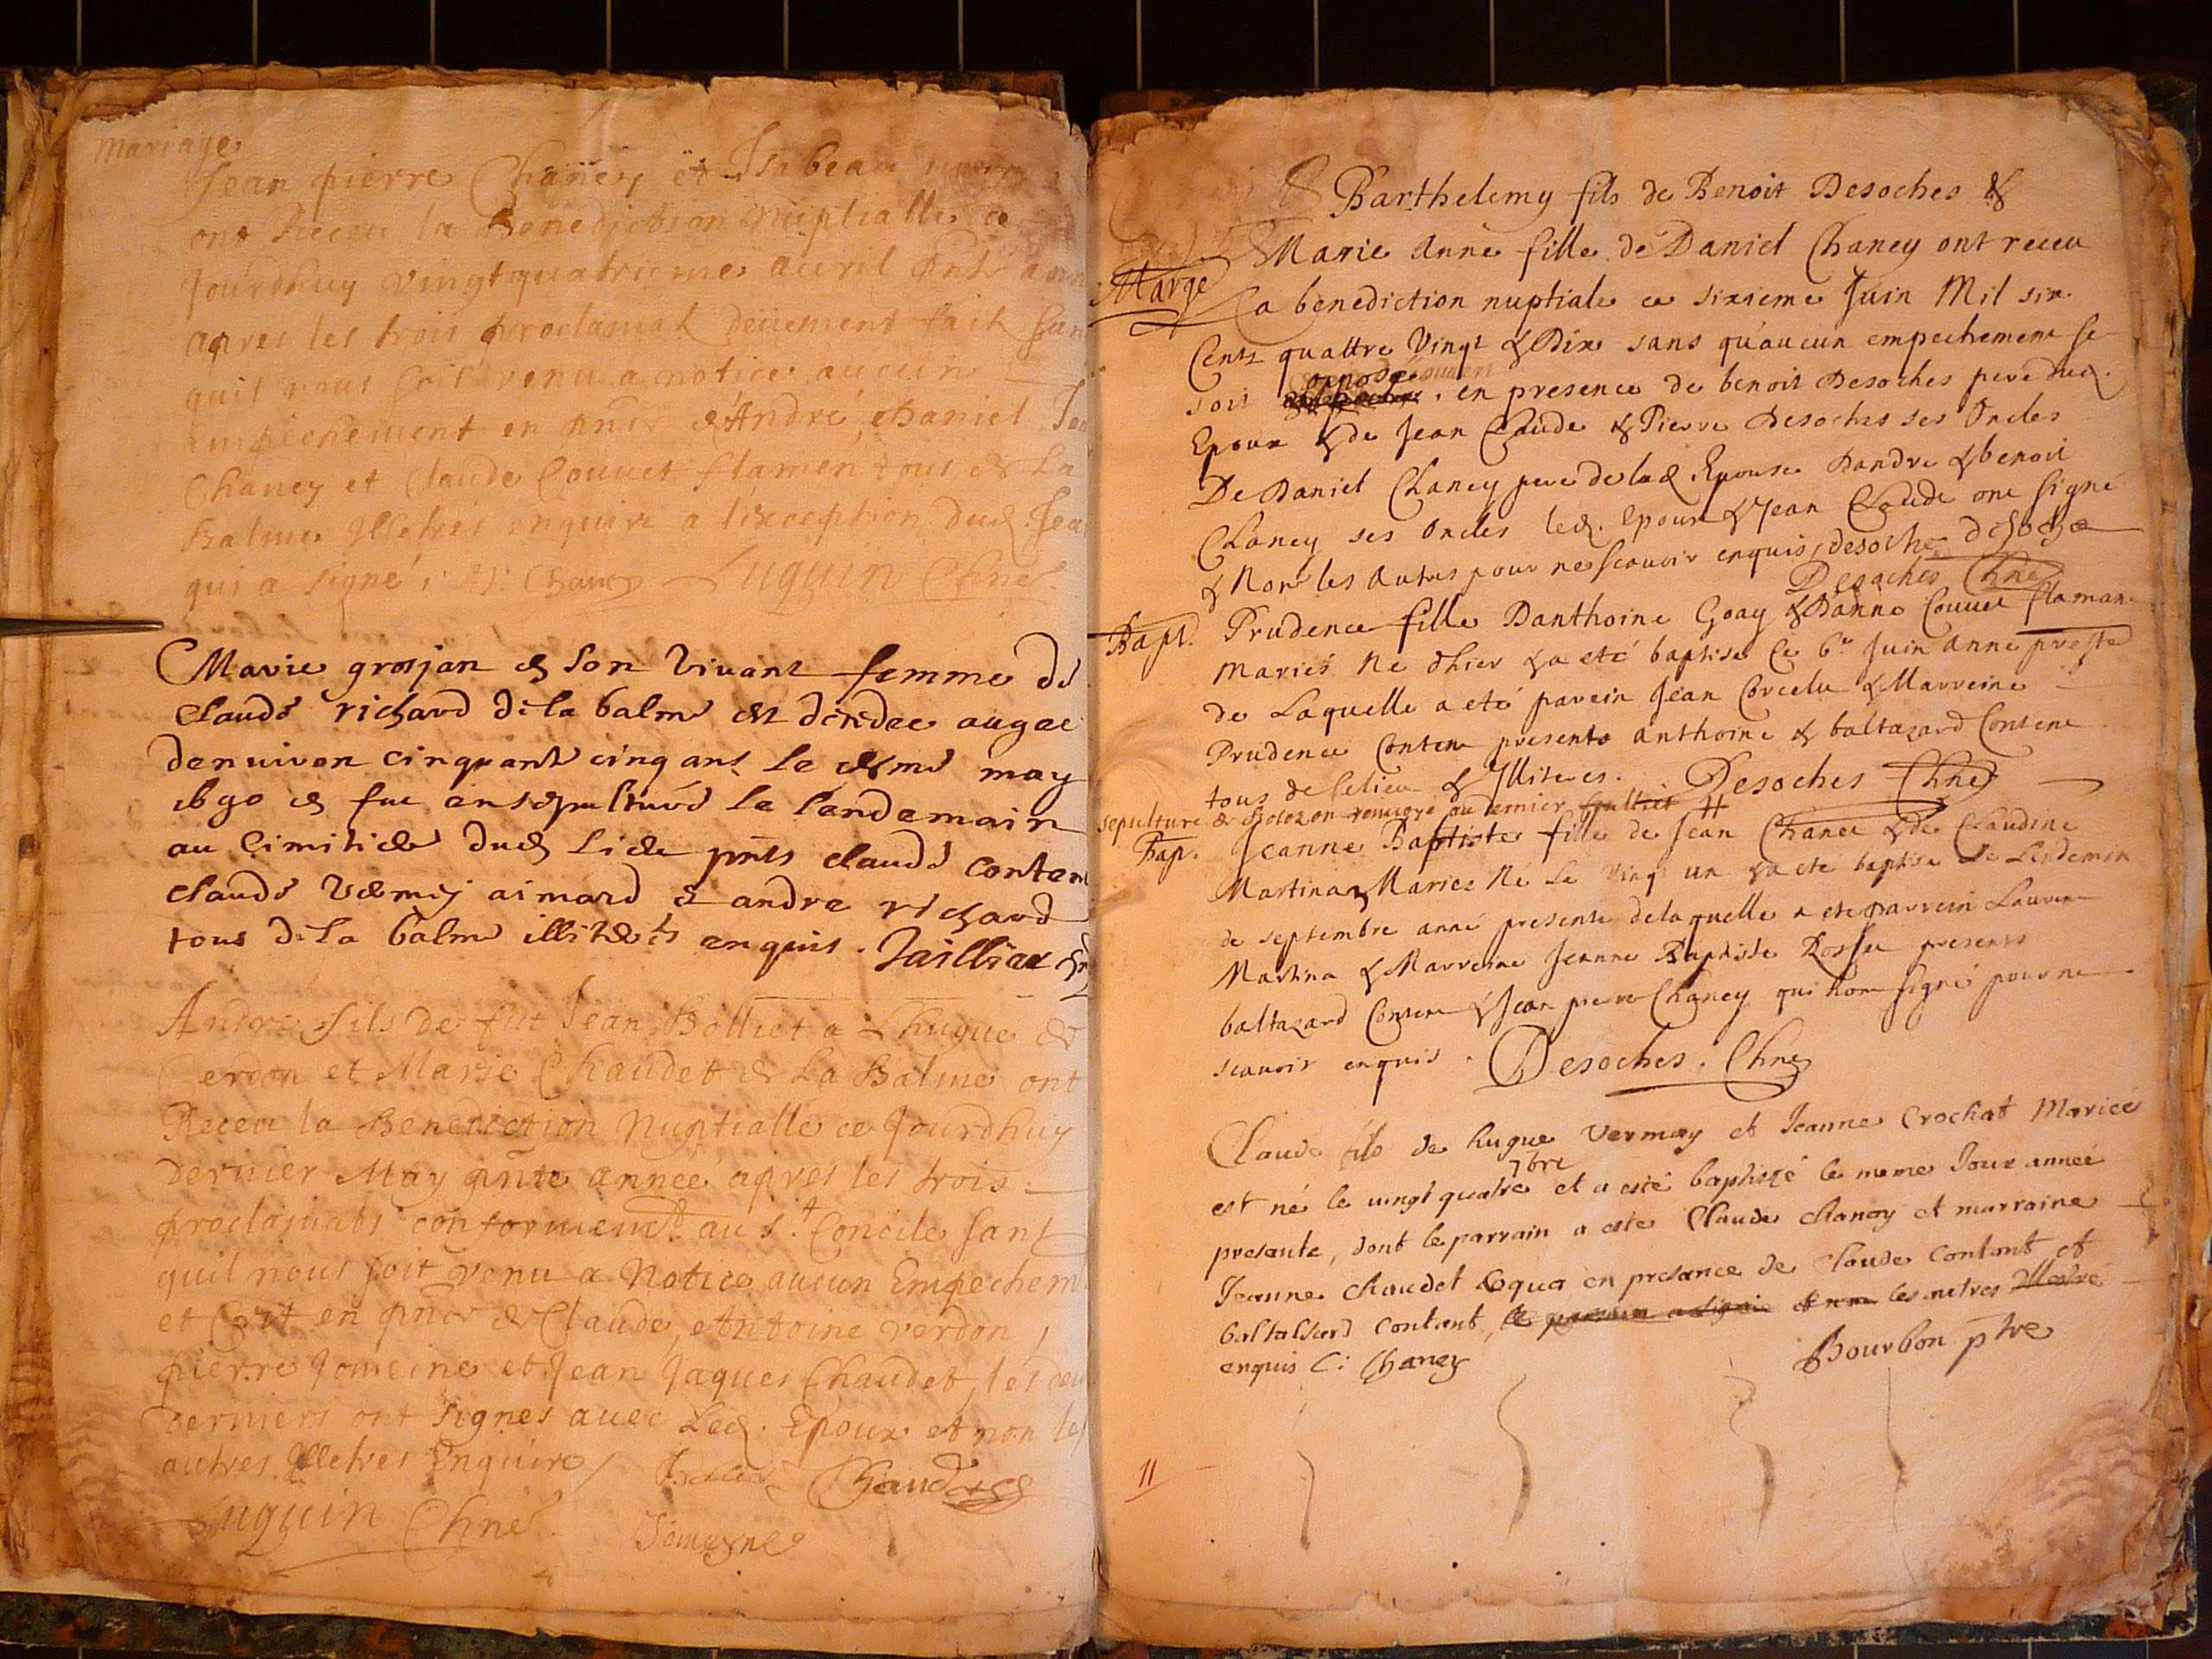 Mariage
Jean pierre Chaney et Isabeau
ont Receu la Benediction nuptialle ce
Jourdhuy vingt quatrieme avril
apres les trois proclamat deuement fait san
quil nous soit venu a notice aucun
Empechement en d'André, Daniel
Chaney et Claude Couvet flamen tous de La
Balme Illetres enquire a l'exception dud. Jea
qui a signé, Chaney Luguin Chne
Marie grosjan en son vivant femme de
claude richard de la balme est decedee augae
denuiron cinquante cinq ans le may
et fut ensepulturée le landemain
au Cimitiere dud Lieu pnts claude conten
claude aimard et andre richard
tous de La balme illiteres enquis. Jailliet
Andre fils de fut Jean Bolliet a Lhugue de
Cerdon et Marie Chaudet de La Balme ont
Receu la Benediction Nuptialle ce Jourdhuy
dernier May pnte année apres les trois
proclamats conformemt. au St. Concile sans
quil nous soit venu a Notice aucun Empechemt
et Cert en pnce de Claude, Antoine verdon,
pierre Jomeine et Jean Jaques Chaudet, les deu
derniers ont signes avec Led. Epoux et non les
autres Illetres Enquire, Chaudet
Luguin Chne. Jomeyne
Barthelemy fils de Benoit Desoches &
Marie Anne fille de Daniel Chaney ont receu
Marge La benediction nuptiale ce sixieme Juin Mil six
Cents quattre Vingt & Dix sans qu'aucun empechement se
soit opposé en presence de benoit Desoches pere dud.
Epoux & de Jean Claude & Pierre Desoches ses Oncles
De Daniel Chaney pere de lad. Epouse Dandre & benoit
Chaney ses Oncles led. Epoux & Jean Claude ont signé
& Non les Autres pour ne scavoir enquis, desoche desoche
Desoches Chne
Bapt. Prudence fille Danthoine Goay & Danne Couvet flaman
Mariés Ne d'hier & a eté baptisé Ce 6e Juin Anne pres.te
de Laquelle a eté parein Jean Corcelu & Marreine
Prudence Conten presents anthoine & baltazard Contene
tous de Celieu & Illiteres. Desoches Chne
sepulture de renvoyé au dernier
Bap. Jeanne Baptiste fille de Jean Chanee & de Claudine
Martinaz Mariez Né Le Vingt un & a eté baptisé Le Lendemin
de septembre anné presente de laquelle a eté parrein Laurent
Martina & Marreine Jeanne Baptiste Rosse presents
baltazard Conten & Jean pierre Chaney qui non signé pour ne
scavoir enquis. Desoches. Chne
Claude fils de hugue Vermay et Jeanne Crochat Mariés
est né le vingt quatre 7bre et a esté baptisé le meme Jour année
presante, dont le parrain a este Claude chaney et marraine
Jeanne chaudet Coqua en presance de Claude Contant et
baltalsard contant, le parrain a signé et non les autres Illetré
enquis C: Chaney Bourbon ptre
11